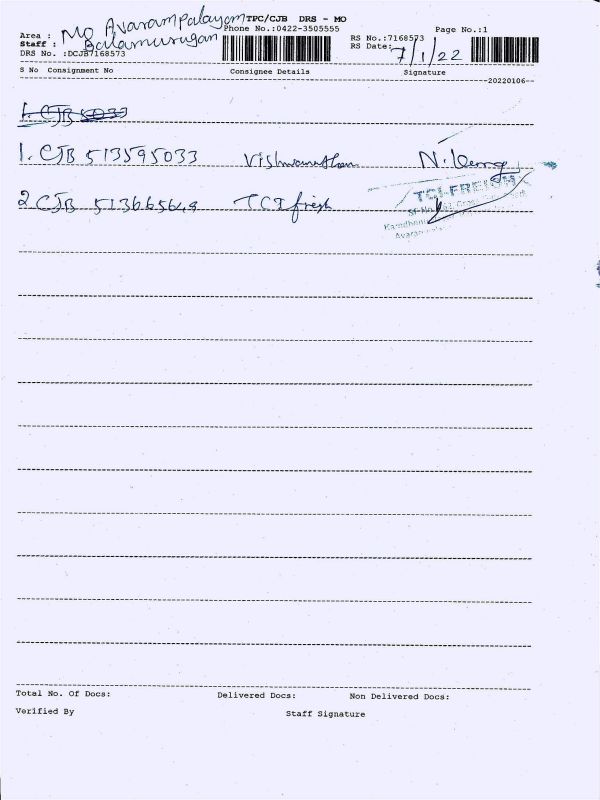 TPC/CJB DRS - MO
Area : Mo Avarampalayam
Phone No.:0422-3505555
Page No.:1
Staff : Balamurugan
RS No.:7168573
RS Date: 7/1/22
DRS No. :DCJB7168573
S No Consignment No Consignee Details Signature
20220106
1. CJB 5033
1. CJB 513595033 Vishwanathan
2 CJB 513665649 TCI fresh
TCI-FREIGHT
Total No. Of Docs: Delivered Docs: Non Delivered Docs:
Verified By Staff Signature